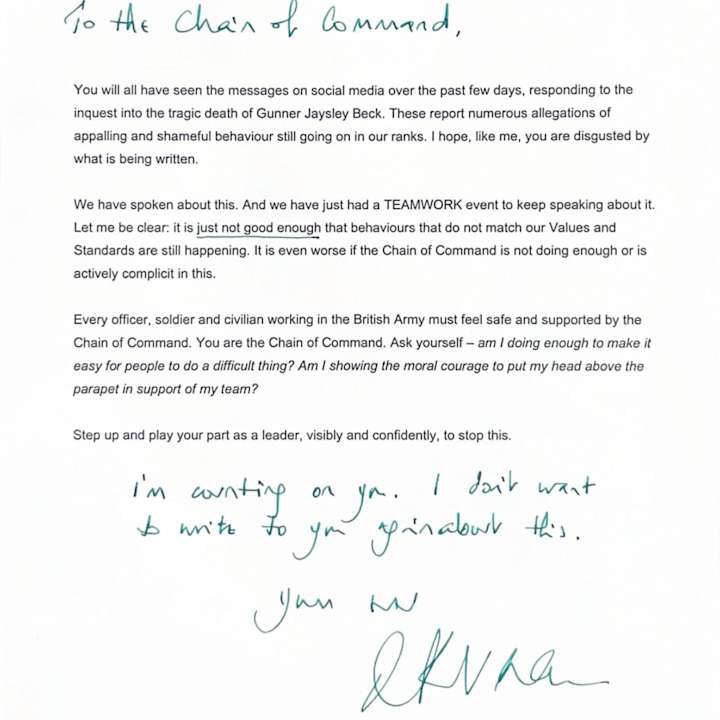 To the Chain of Command,
You will all have seen the messages on social media over the past few days, responding to the
inquest into the tragic death of Gunner Jaysley Beck. These report numerous allegations of
appalling and shameful behaviour still going on in our ranks. I hope, like me, you are disgusted by
what is being written.
We have spoken about this. And we have just had a TEAMWORK event to keep speaking about it.
Let me be clear: it is just not good enough that behaviours that do not match our Values and
Standards are still happening. It is even worse if the Chain of Command is not doing enough or is
actively complicit in this.
Every officer, soldier and civilian working in the British Army must feel safe and supported by the
Chain of Command. You are the Chain of Command. Ask yourself – am I doing enough to make it
easy for people to do a difficult thing? Am I showing the moral courage to put my head above the
parapet in support of my team?
Step up and play your part as a leader, visibly and confidently, to stop this.
I'm counting on you. I don't want
to write to you again about this.